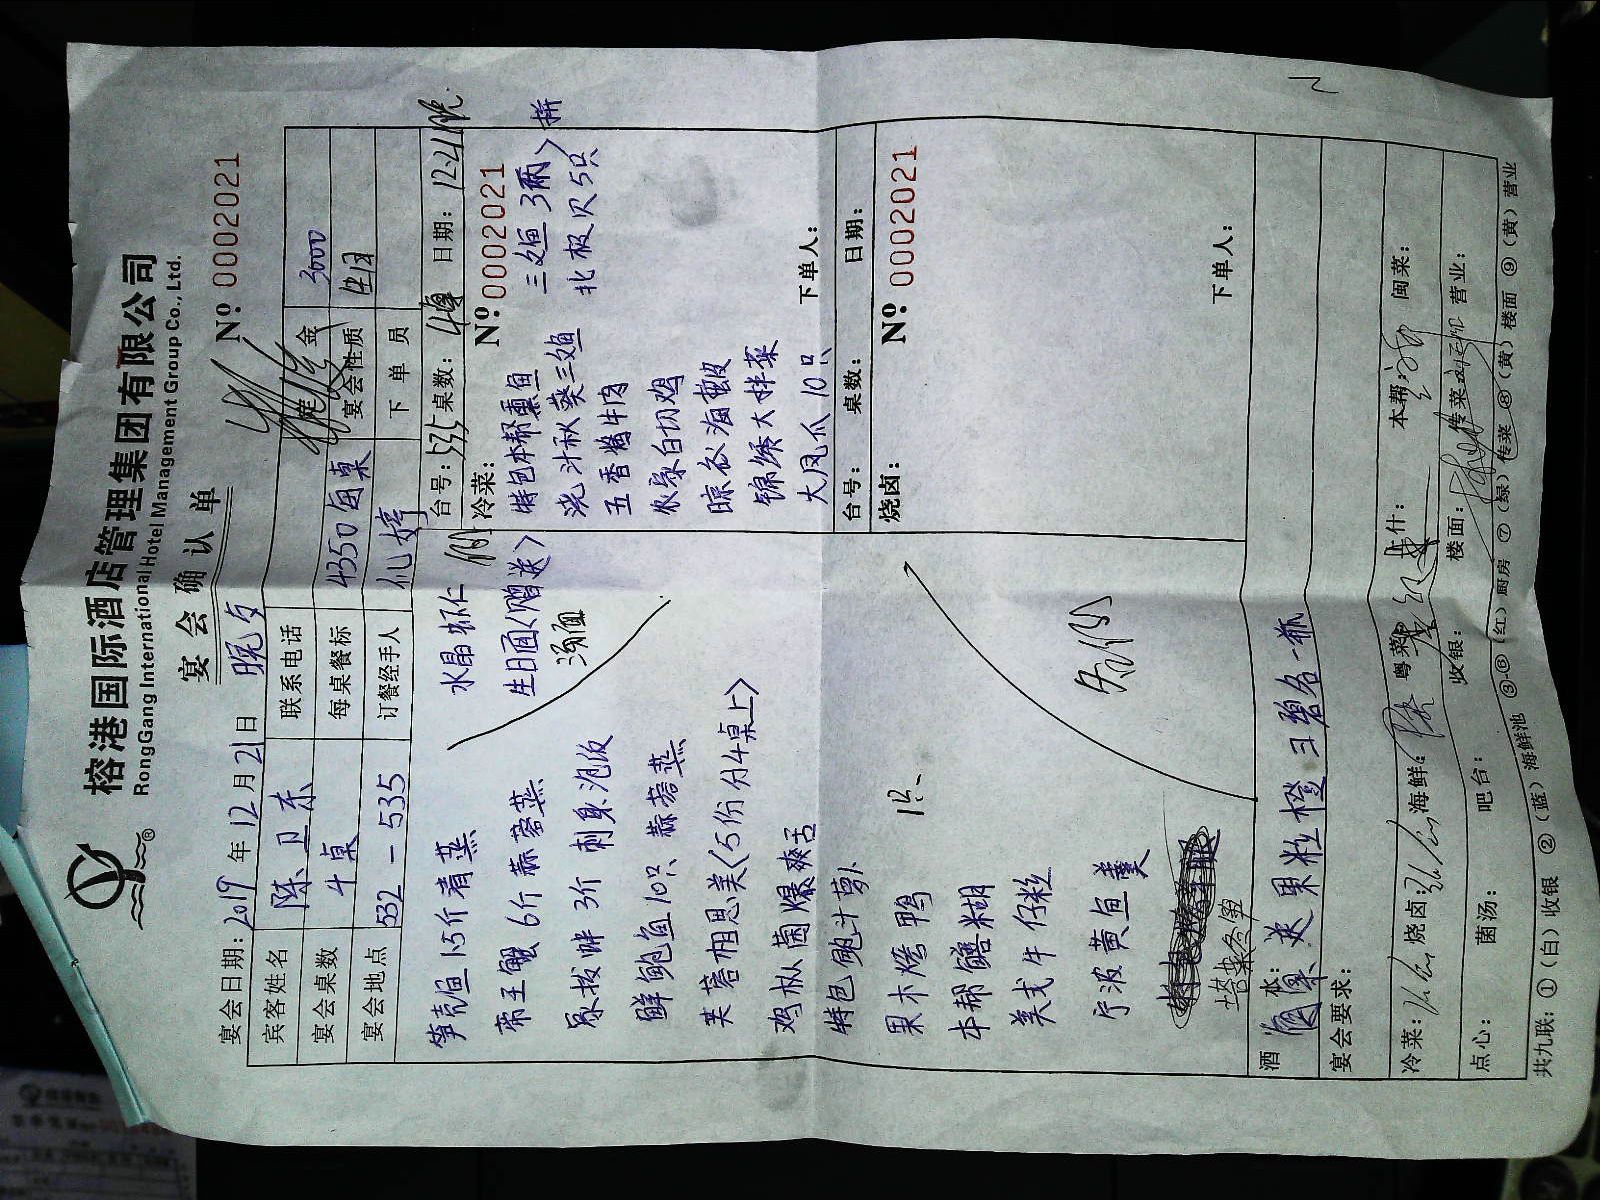 榕港国际酒店管理集团有限公司
RongGang International Hotel Management Group Co., Ltd.
宴会确认单
宴会日期：2019年12月21日 晚夕
Nº 0002021
宾客姓名 陈卫东 联系电话 定金 3000
宴会桌数 4桌 每桌餐标 4350每桌 宴会性质
宴会地点 532-535 订餐经手人 下单员
笋壳鱼1.5斤清蒸
帝王蟹6斤蒜蓉蒸
3斤刺身泡饭
鲜鲍鱼10只 蒜蓉蒸
芙蓉相思美(5份分4桌上)
鸡枞菌爆爽舌
特色鲍汁萝卜
果木烤鸭 1只
本帮鳝糊
美式牛仔粒
宁波黄鱼羹
水晶虾仁
生日面(赠送)
汤面
台号：535 桌数：4桌 日期：12.21晚
冷菜：
Nº 0002021
特色本帮熏鱼
浇汁秋葵三文鱼
五香酱牛肉
农家白切鸡
海蜇皮
锦绣大拌菜
大凤爪10只
三文鱼3两
北极贝5只
拼
下单人：
台号： 桌数： 日期：
烧卤：
Nº 0002021
下单人：
酒水： 送果粒橙 雪碧各一瓶
宴会要求：
冷菜： 烧卤： 海鲜： 粤菜： 上什： 本帮： 闽菜：
点心： 菌汤： 吧台： 收银： 楼面： 传菜： 营业：
共九联：①(白)收银 ②(蓝)海鲜池 ③-⑥(红)厨房 ⑦(绿)传菜 ⑧(黄)楼面 ⑨(黄)营业